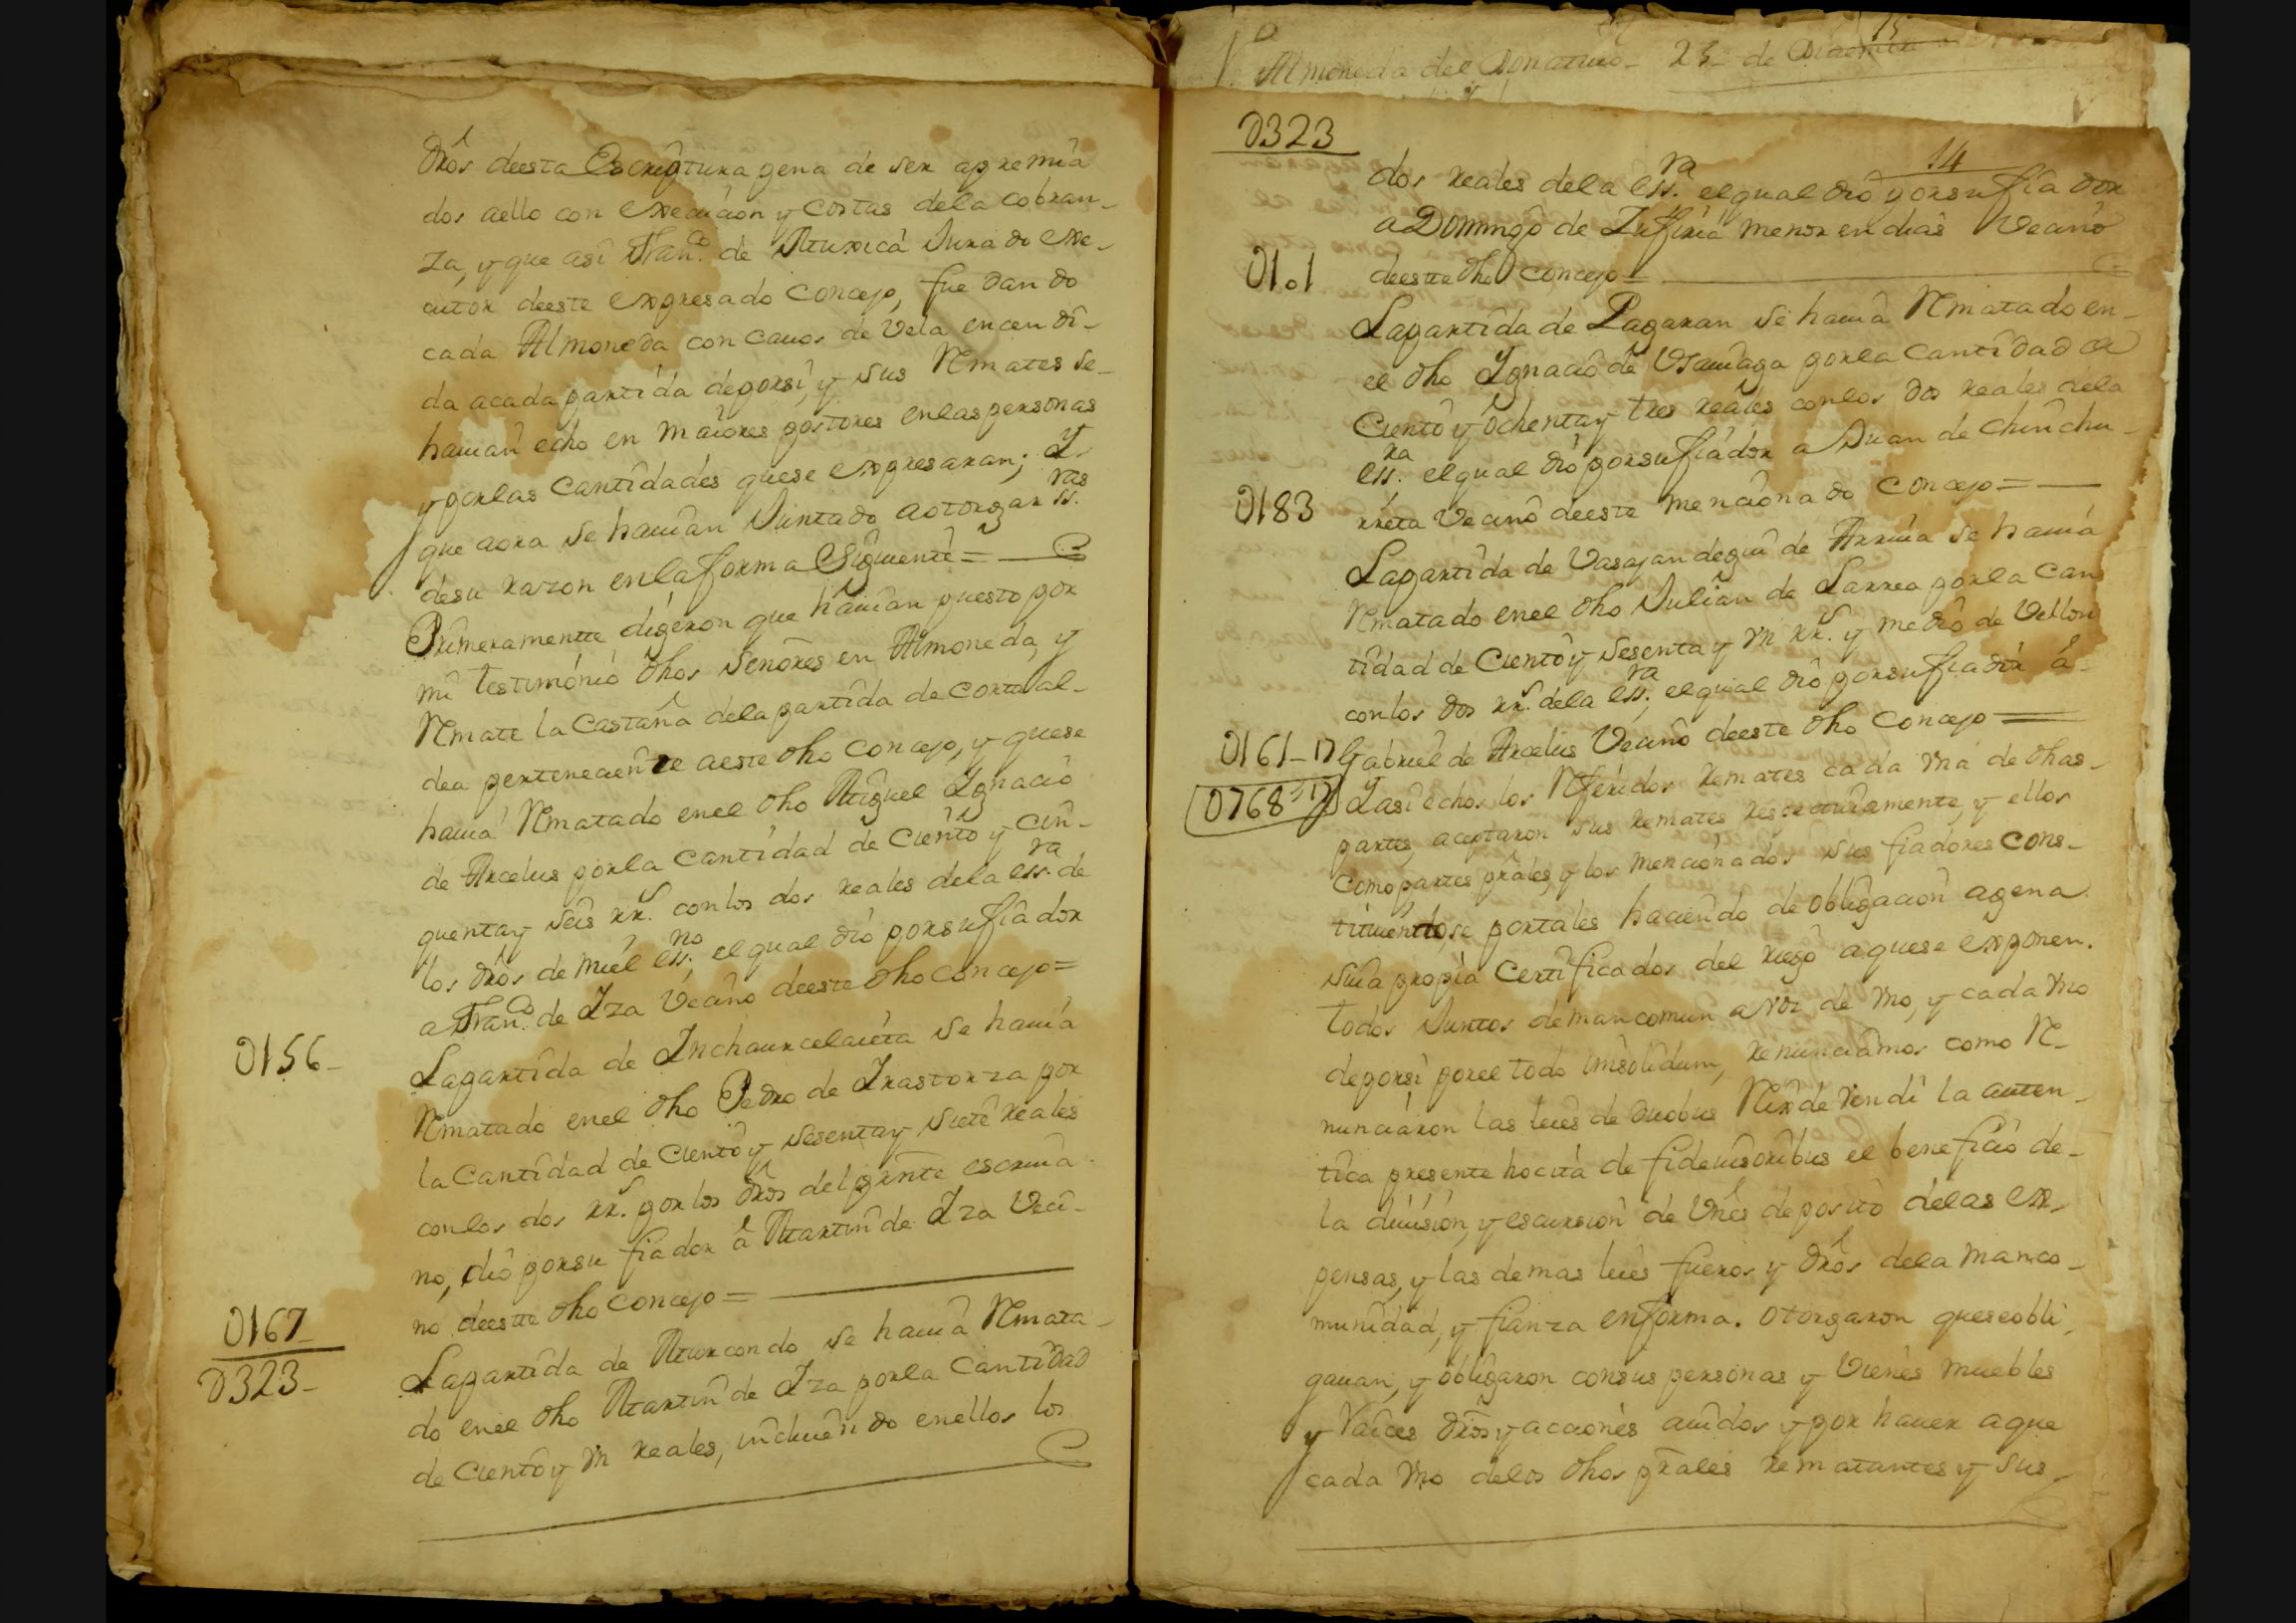 dros deesta Escriptura pena de ser apremia
dos aello con execucion y costas dela cobran-
za, y que asi Fran.co de Muxica Jurado exe-
cutor deeste expresado Concejo, fue dando
cada Almoneda con cauos de Vela encendi-
da acada partida deporsi, y sus Rmates se-
hauian echo en maiores postores enlas personas
y porlas Cantidades quese expresaran; I-
que aora se hauian Juntado aotorgar ss.ras
desu razon enla forma Siguiente =
Primeramentte digeron que hauian puesto por
mi testimonio dhos Señores en Almoneda, y
Rmate la Castaña dela partida de Cortaal-
dea perteneciente aeste dho Concejo, y quese
hauia Rmatado enel dho Miguel Ignacio
de Arcelus porla Cantidad de Ciento y cin-
quentay seis rr.s conlos dos reales dela ess.ra de
los dros de miel ess.no el qual dio porsufiador
a Fran.co de Iza Vecino deeste dho Concejo=
0156-
Lapartida de Inchaurcelaieta se hauia
Rmatado enel dho Pedro de Irastorza por
la Cantidad de Ciento y Sesentay Siete reales
conlos dos rr.s por los dros del prnte escriua
no, dio porsu fiador â Martin de Iza Veci-
no deestte dho Concejo =
0167-
0323-
Lapartida de Murcondo se hauia Rmata-
do enel dho Martin de Iza porla Cantidad
de Ciento y vn reales, incluiendo enellos los
Almoneda del Donatiuo- 23- de Diciembre
15
0323
14
dos reales dela ess.ra elqual dio porsufiador
a Domingo de Zufiria menor en dias Vecino
0101
deestte dho Concejo =
Lapartida de Pagaran se hauia Rmatado en-
el dho Ignacio de Vsauiaga porla Cantidad de
Ciento y ochentay tres reales conlos dos reales dela
ess.ra elqual dio porsufiador a Juan de Chinchu-
0183
rreta Vecino deeste mencionado Concejo =
Lapartida de Vasajandegui de Arria se hauia
Rmatado enel dho Julian de Larrea porla Can
tidad de Ciento y Sesenta y vn rr.s y medio de Vellon
conlos dos rr.s dela ess.ra, elqual dio porsufiador â-
0161-17
Gabriel de Arcelus Vecino deeste dho Concejo
0768-17
Iasi echos los Rferidos remates cada vna de dhas-
partes, aceptaron sus remates respectiuamente, y ellos
Como partes prales, y los mencionados sus fiadores Cons-
tituiendose portales haciendo de obligacion agena
suia propia Certificados del riesgo aquese exponen.
todos Juntos demancomun avoz de vno, y cada vno
deporsi porel todo insolidum, renunciamos como R-
nunciaron las leies de duobus Rix de vendi la auten-
tica presente hocita de fideiusoribus el beneficio de-
la diuision, y escursion de Vnes deposito delas ex-
pensas, y las demas leies fueros y dros dela manco-
munidad, y fianza enforma. otorgaron queseobli-
gauan, y obligaron consus personas y Vienes muebles
y Raices dros y acciones auidos y por hauer aque
cada vno delos dhos prales rematantes y sus-